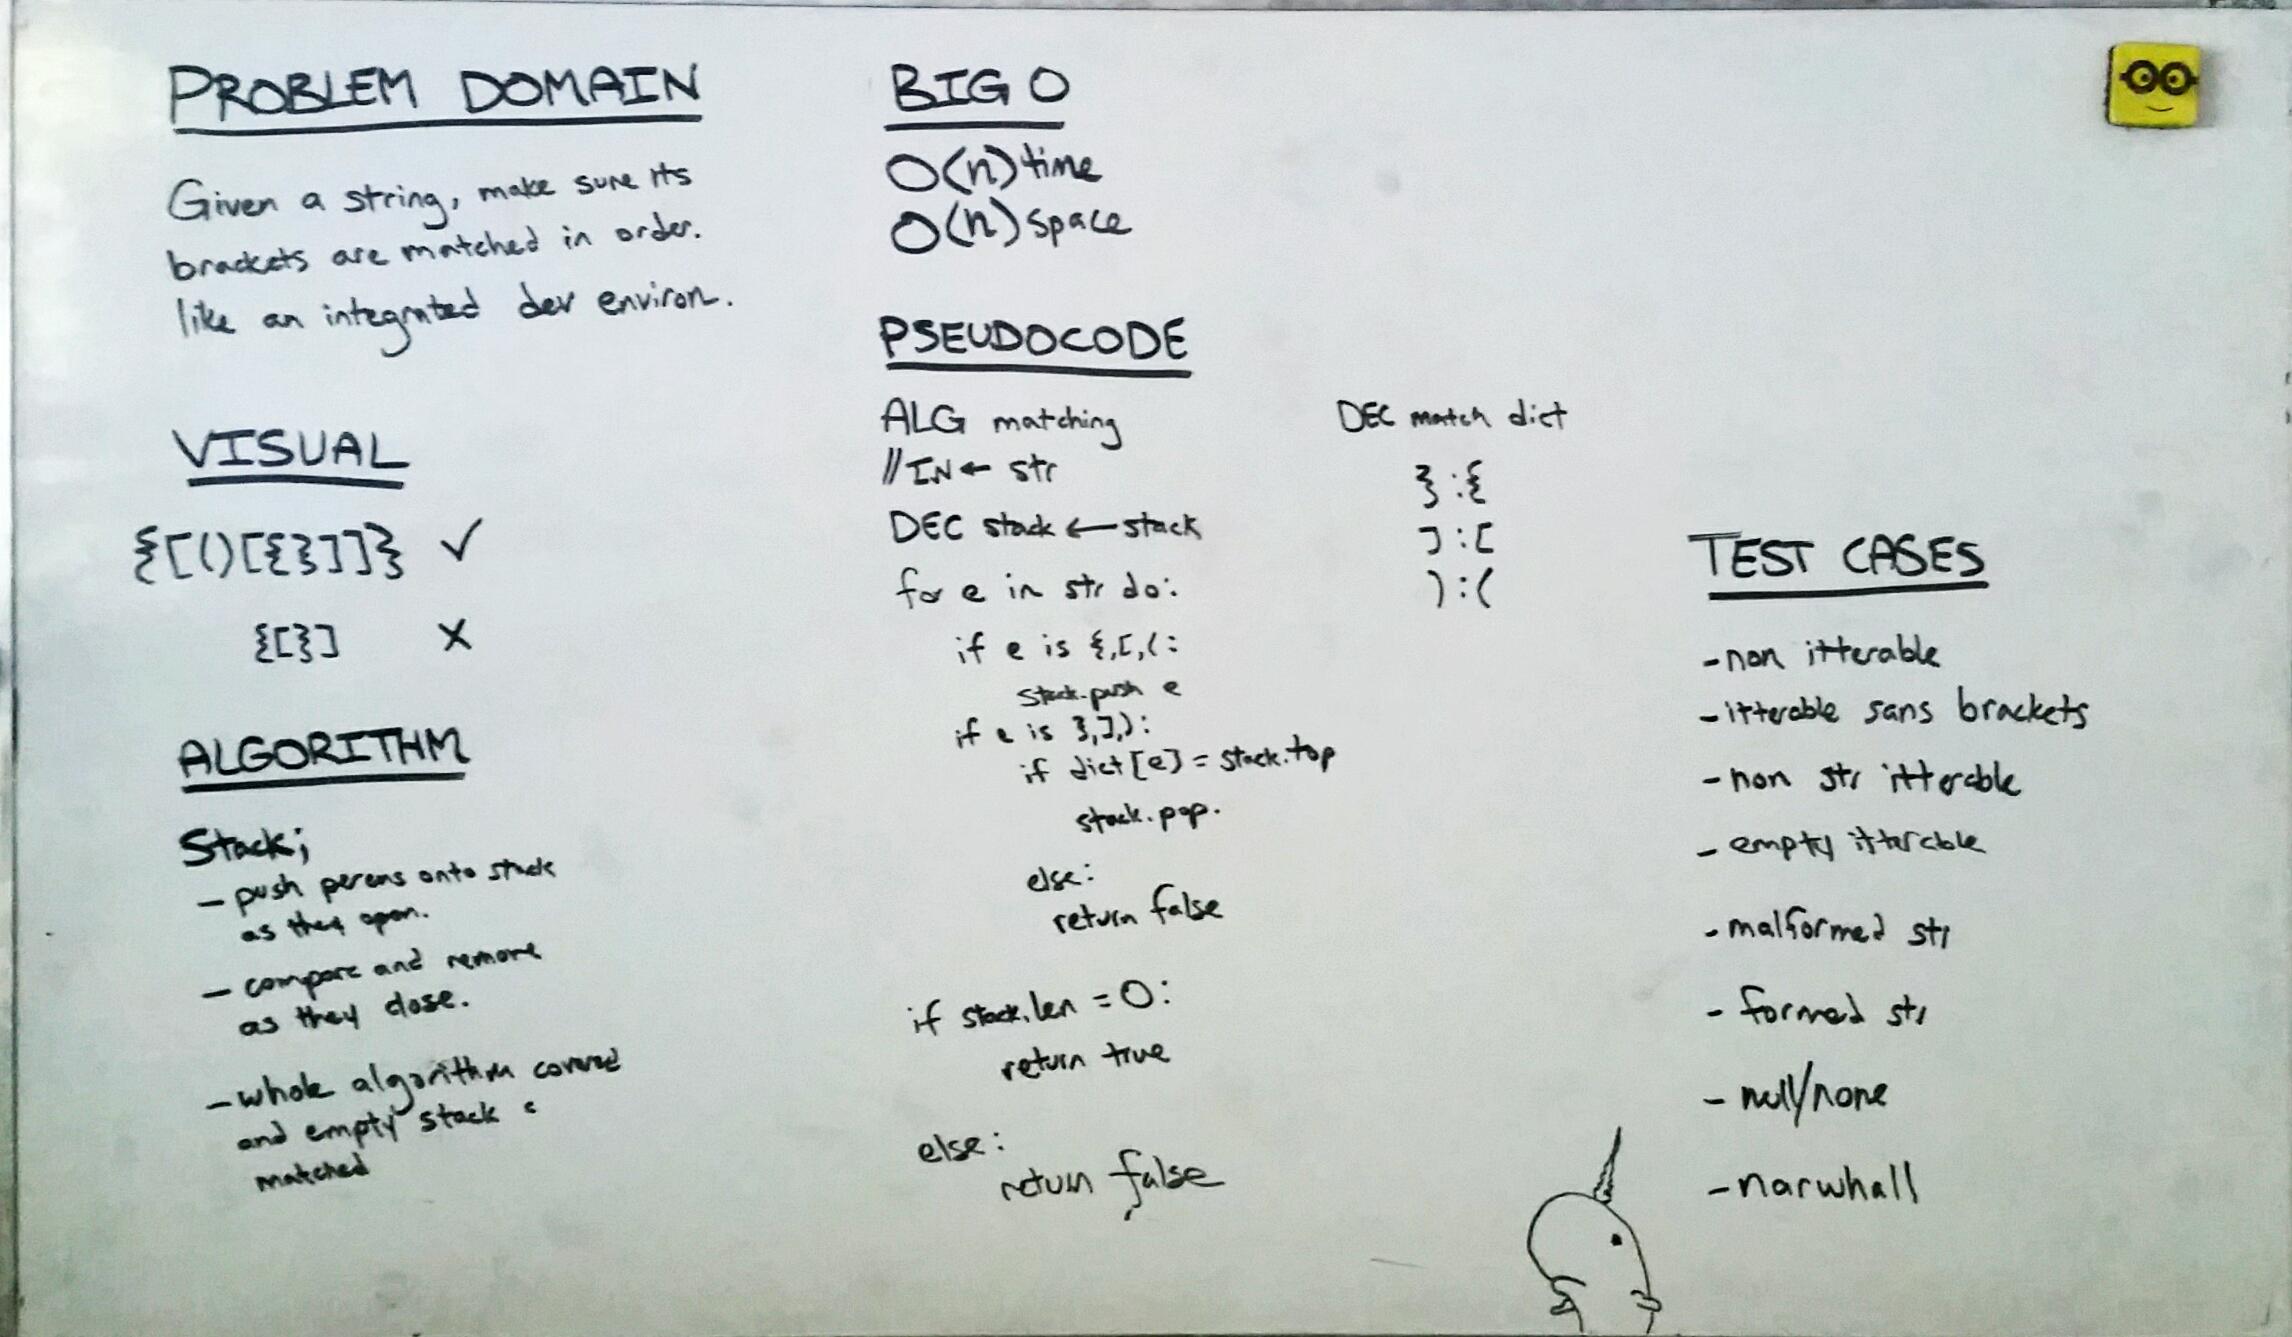 PROBLEM DOMAIN
Given a string, make sure its
brackets are matched in order.
like an integrated dev environ.
VISUAL
{[()[{}]]} ✓
{[}] X
ALGORITHM
Stack;
- push perens onto stack
as they open.
- compare and remove
as they close.
- whole algorithm covered
and empty stack =
matched
BIG O
O(n) time
O(n) space
PSEUDOCODE
ALG matching
// IN ← str
DEC stack ← stack
for e in str do:
if e is {,[,(:
stack.push e
if e is },],):
if dict[e] = stack.top
stack.pop.
else:
return false
if stack.len = 0:
return true
else:
return false
DEC match dict
}:{
]:[
):(
TEST CASES
- non itterable
- itterable sans brackets
- non str itterable
- empty itterable
- malformed str
- formed str
- null/none
- narwhall